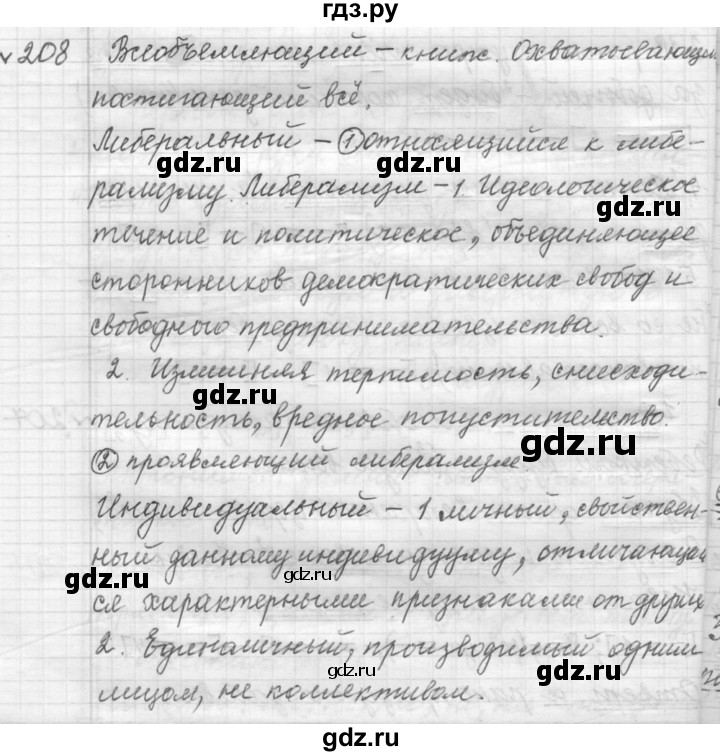 гдз.ру
№208 Всеобъемлющий – книж. Охватывающий,
постигающий всё.
Либеральный – ① относящийся к либе-
gdz.ru gdz.ru
рализму. Либерализм – 1. Идеологическое
gdz.ru
течение и политическое, объединяющее
сторонников демократических свобод и
свободного предпринимательства.
2. Излишняя терпимость, снисходи-
gdz.ru
тельность, вредное попустительство.
gdz.ru
② проявляющий либерализм.
Индивидуальный – 1 личный, свойствен-
ный данному индивидууму, отличающий
gdz.ru gdz.ru
ся характерными признаками от других
2. Единичный, производимый одним
gdz.ru
лицом, не коллективом.
gdz.ru
гдз.ру